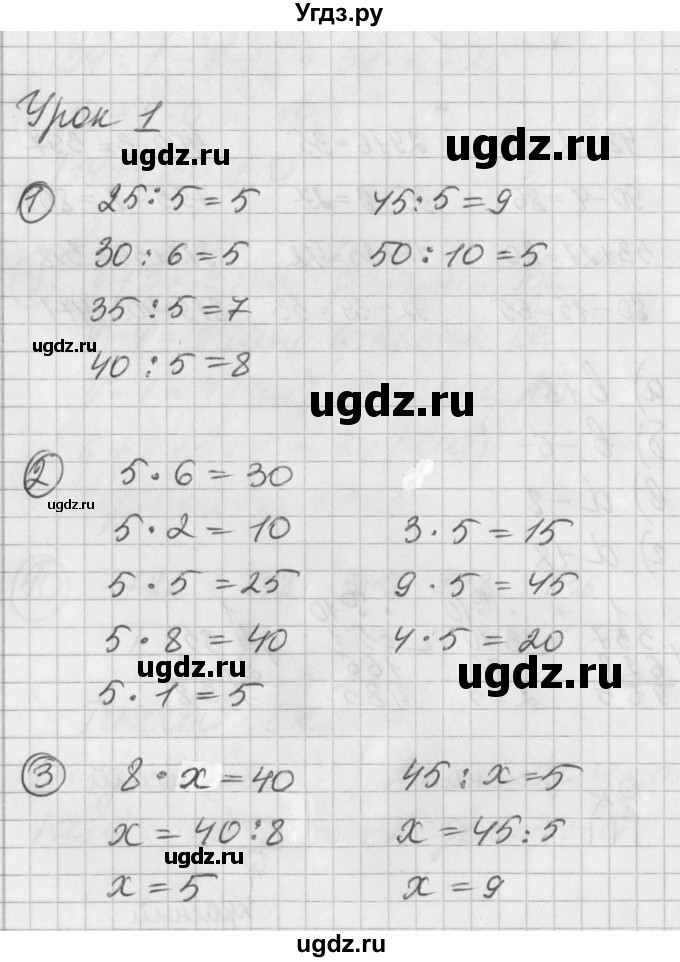 Угдз.ру
Урок 1
ugdz.ru
ugdz.ru
1 25:5=5 45:5=9
30:6=5 50:10=5
35:5=7
ugdz.ru
40:5=8
ugdz.ru
2 5·6=30
ugdz.ru
5·2=10 3·5=15
5·5=25 9·5=45
5·8=40 4·5=20
ugdz.ru
ugdz.ru
5·1=5
3 8·x=40 45:x=5
x=40:8 x=45:5
ugdz.ru
x=5 x=9
ugdz.ru